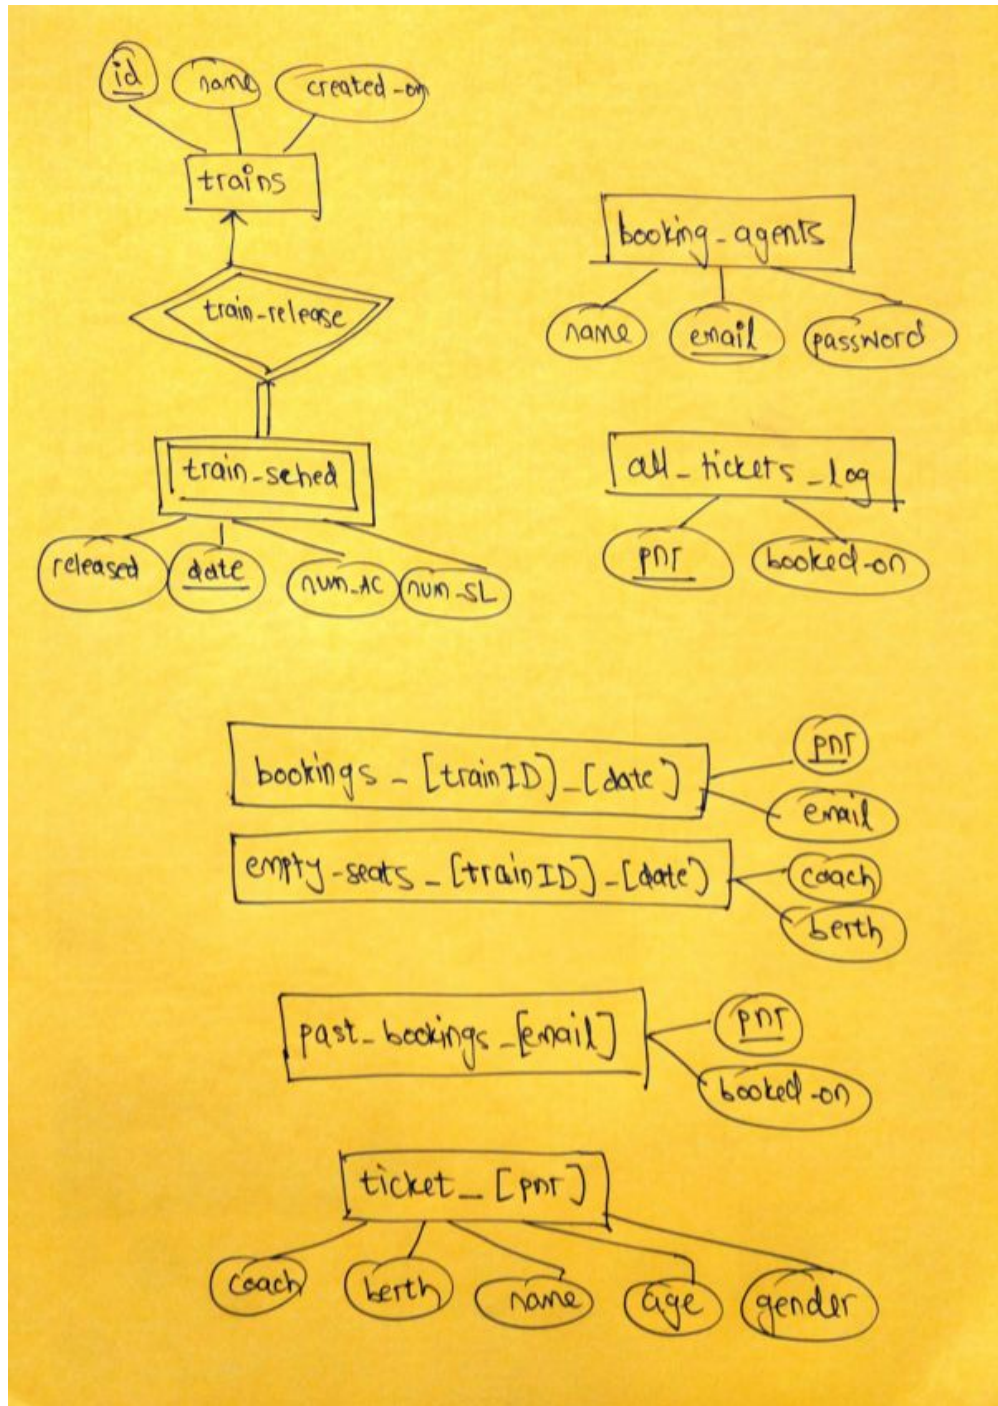 id name created-on
trains
train-release
train-sched
released date num-AC num-SL
booking-agents
name email password
all-tickets-log
pnr booked-on
bookings-[trainID]-[date]
pnr
email
empty-seats-[trainID]-[date]
coach
berth
past-bookings-[email]
pnr
booked-on
ticket-[pnr]
coach berth name age gender